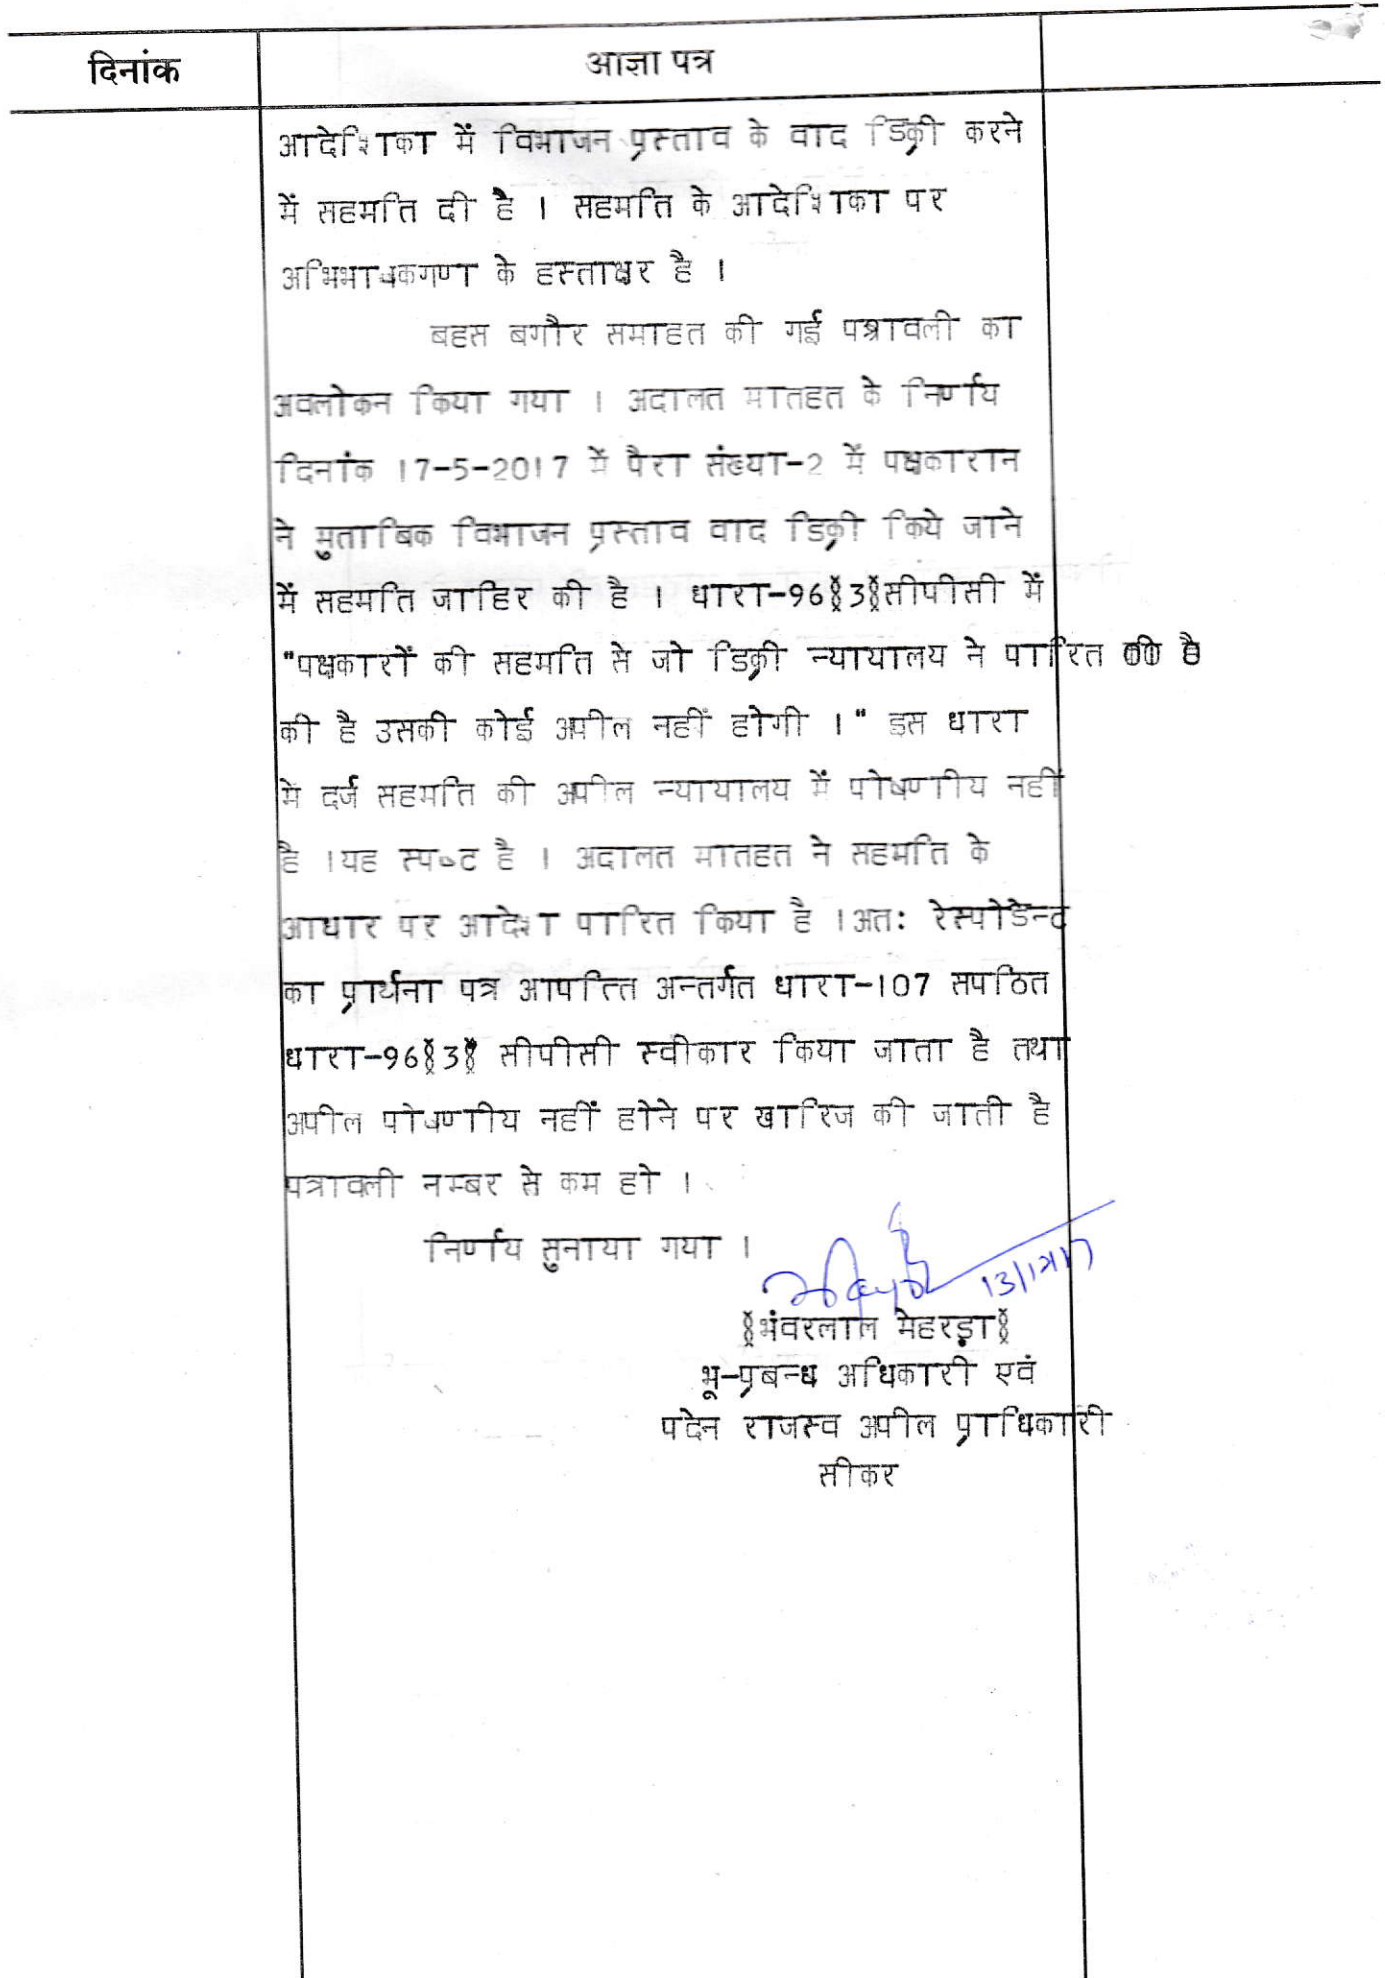 दिनांक आज्ञा पत्र
आदेशिका में विभाजन प्रस्ताव के वाद डिक्री करने
में सहमति दी है । सहमति के आदेशिका पर
अभिभाषकगण के हस्ताक्षर है ।
बहस बगौर समाहत की गई पत्रावली का
अवलोकन किया गया । अदालत मातहत के निर्णय
दिनांक 17-5-2017 में पैरा संख्या-2 में पक्षकारान
ने मुताबिक विभाजन प्रस्ताव वाद डिक्री किये जाने
में सहमति जाहिर की है । धारा-96§3§सीपीसी में
"पक्षकारों की सहमति से जो डिक्री न्यायालय ने पारित
की है उसकी कोई अपील नहीं होगी ।" इस धारा
मे दर्ज सहमति की अपील न्यायालय में पोषणीय नहीं
है ।यह स्पष्ट है । अदालत मातहत ने सहमति के
आधार पर आदेश पारित किया है ।अतः रेस्पोडेन्ट
का प्रार्थना पत्र आपत्ति अन्तर्गत धारा-107 सपठित
धारा-96§3§ सीपीसी स्वीकार किया जाता है तथा
अपील पोषणीय नहीं होने पर खारिज की जाती है
पत्रावली नम्बर से कम हो ।
निर्णय सुनाया गया ।
13/12/17
§भंवरलाल मेहरड़ा§
भू-प्रबन्ध अधिकारी एवं
पदेन राजस्व अपील प्राधिकारी
सीकर